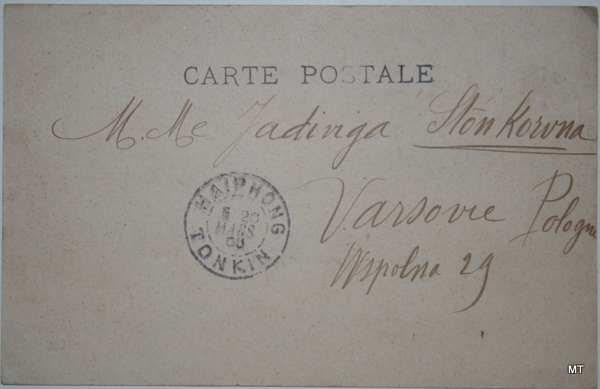 CARTE POSTALE
M. Me Jadiviga Stonkorvna
Varsovie Pologne
Wspolna 29
HAIPHONG
5 26
MARS
05
TONKIN
MT